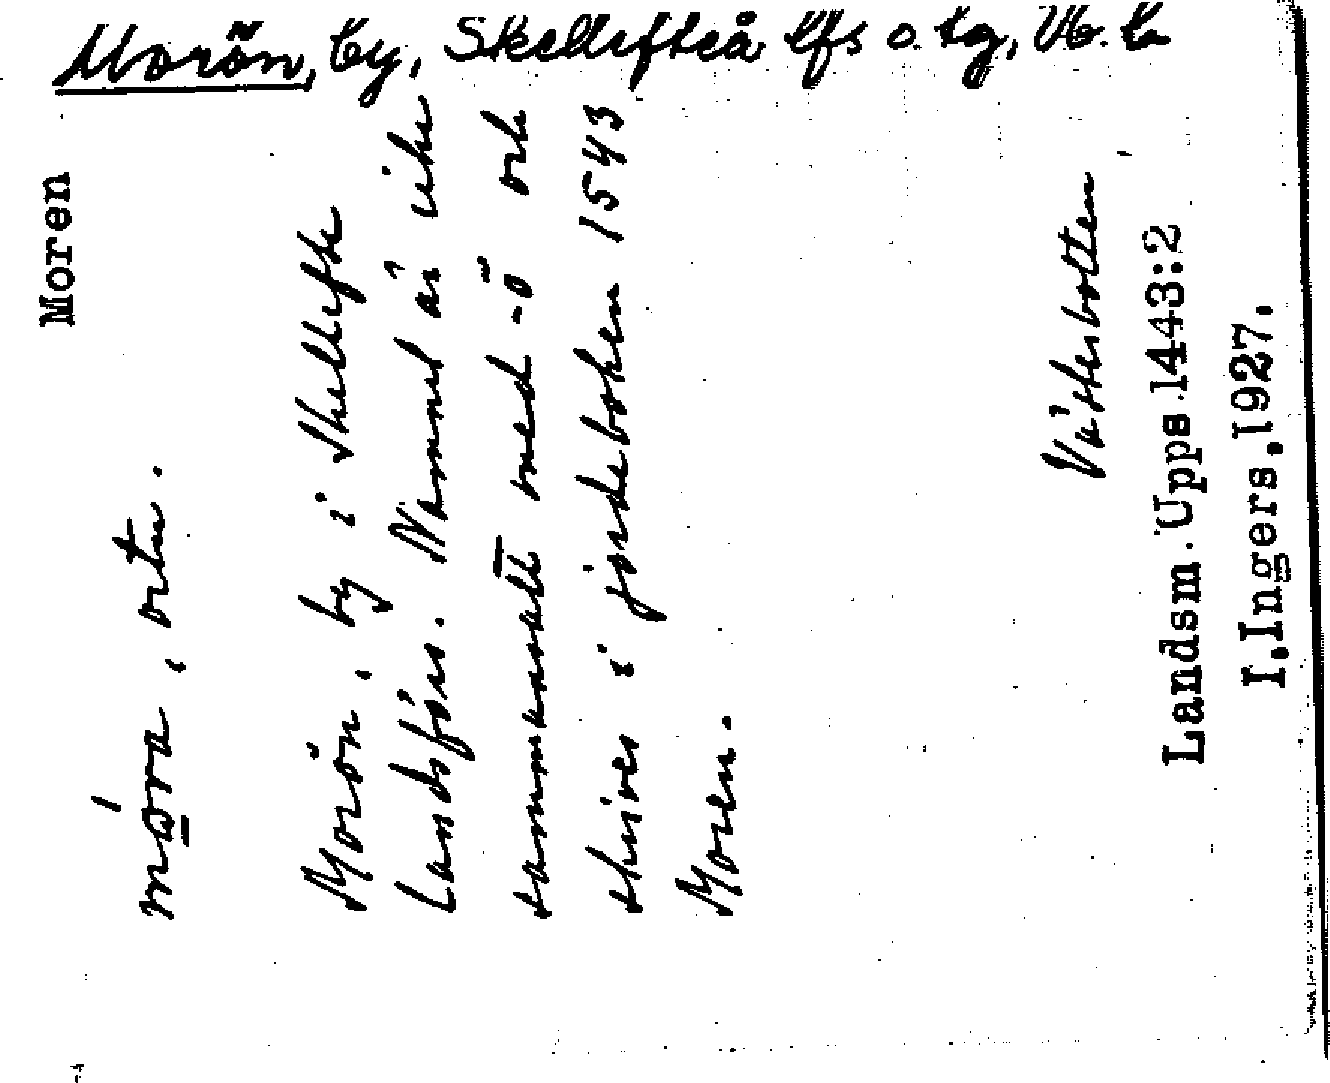 Morön, by, Skellefteå lfs o. tg, Vb. l.
Moren
móra, ortn.
Morön, by i Skellefte
Landsförs. Namnet är icke
sammansatt med -ö och
skrives i jordeboken 1543
Moren.
Västerbotten
Landsm. Upps. 1443:2
I. Ingers. 1927.